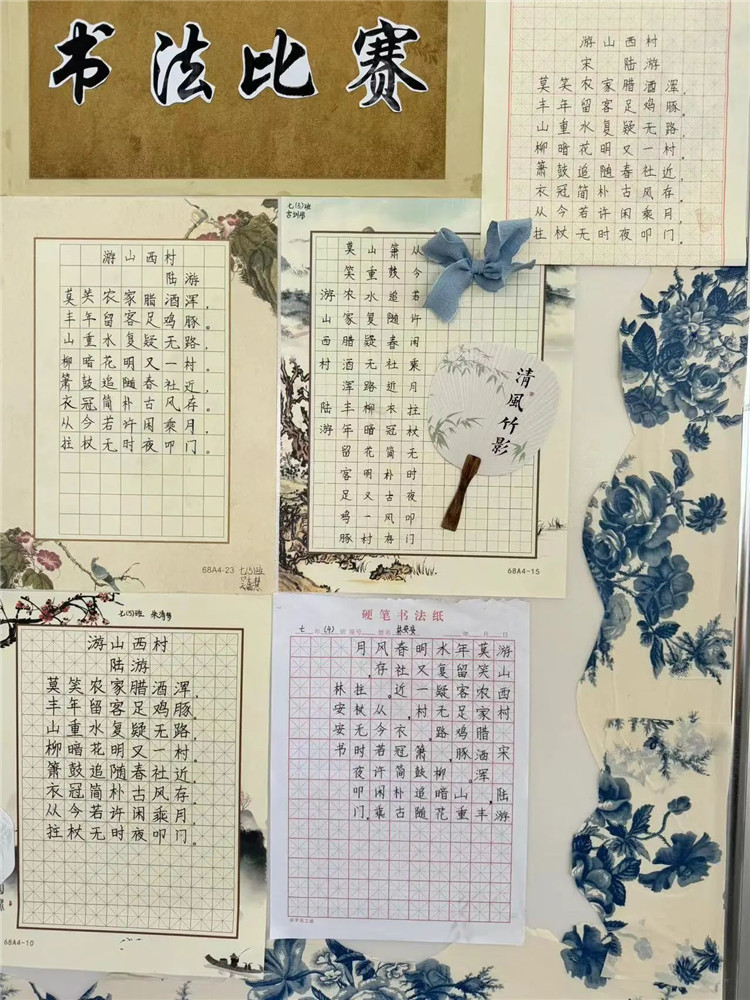 书法比赛
游山西村
宋 陆游
莫笑农家腊酒浑,
丰年留客足鸡豚。
山重水复疑无路,
柳暗花明又一村。
箫鼓追随春社近,
衣冠简朴古风存。
从今若许闲乘月,
拄杖无时夜叩门。
游山西村
陆游
莫笑农家腊酒浑,
丰年留客足鸡豚。
山重水复疑无路,
柳暗花明又一村。
箫鼓追随春社近,
衣冠简朴古风存。
从今若许闲乘月,
拄杖无时夜叩门。
68A4-23
七(5)班
七(5)班
游山西村 陆游
莫笑农家腊酒浑丰年留客足鸡豚
山重水复疑无路柳暗花明又一村
箫鼓追随春社近衣冠简朴古风存
从今若许闲乘月拄杖无时夜叩门
68A4-15
清風竹影
七(5)班
游山西村
陆游
莫笑农家腊酒浑,
丰年留客足鸡豚。
山重水复疑无路,
柳暗花明又一村。
箫鼓追随春社近,
衣冠简朴古风存。
从今若许闲乘月,
拄杖无时夜叩门。
68A4-10
硬笔书法纸
七 年 (4) 班 姓名 林安安 年 月 日
游山西村 宋 陆游
莫笑农家腊酒浑,丰
年留客足鸡豚。山重
水复疑无路,柳暗花
明又一村。箫鼓追随
春社近,衣冠简朴古
风存。从今若许闲乘
月,拄杖无时夜叩门。
林安安书